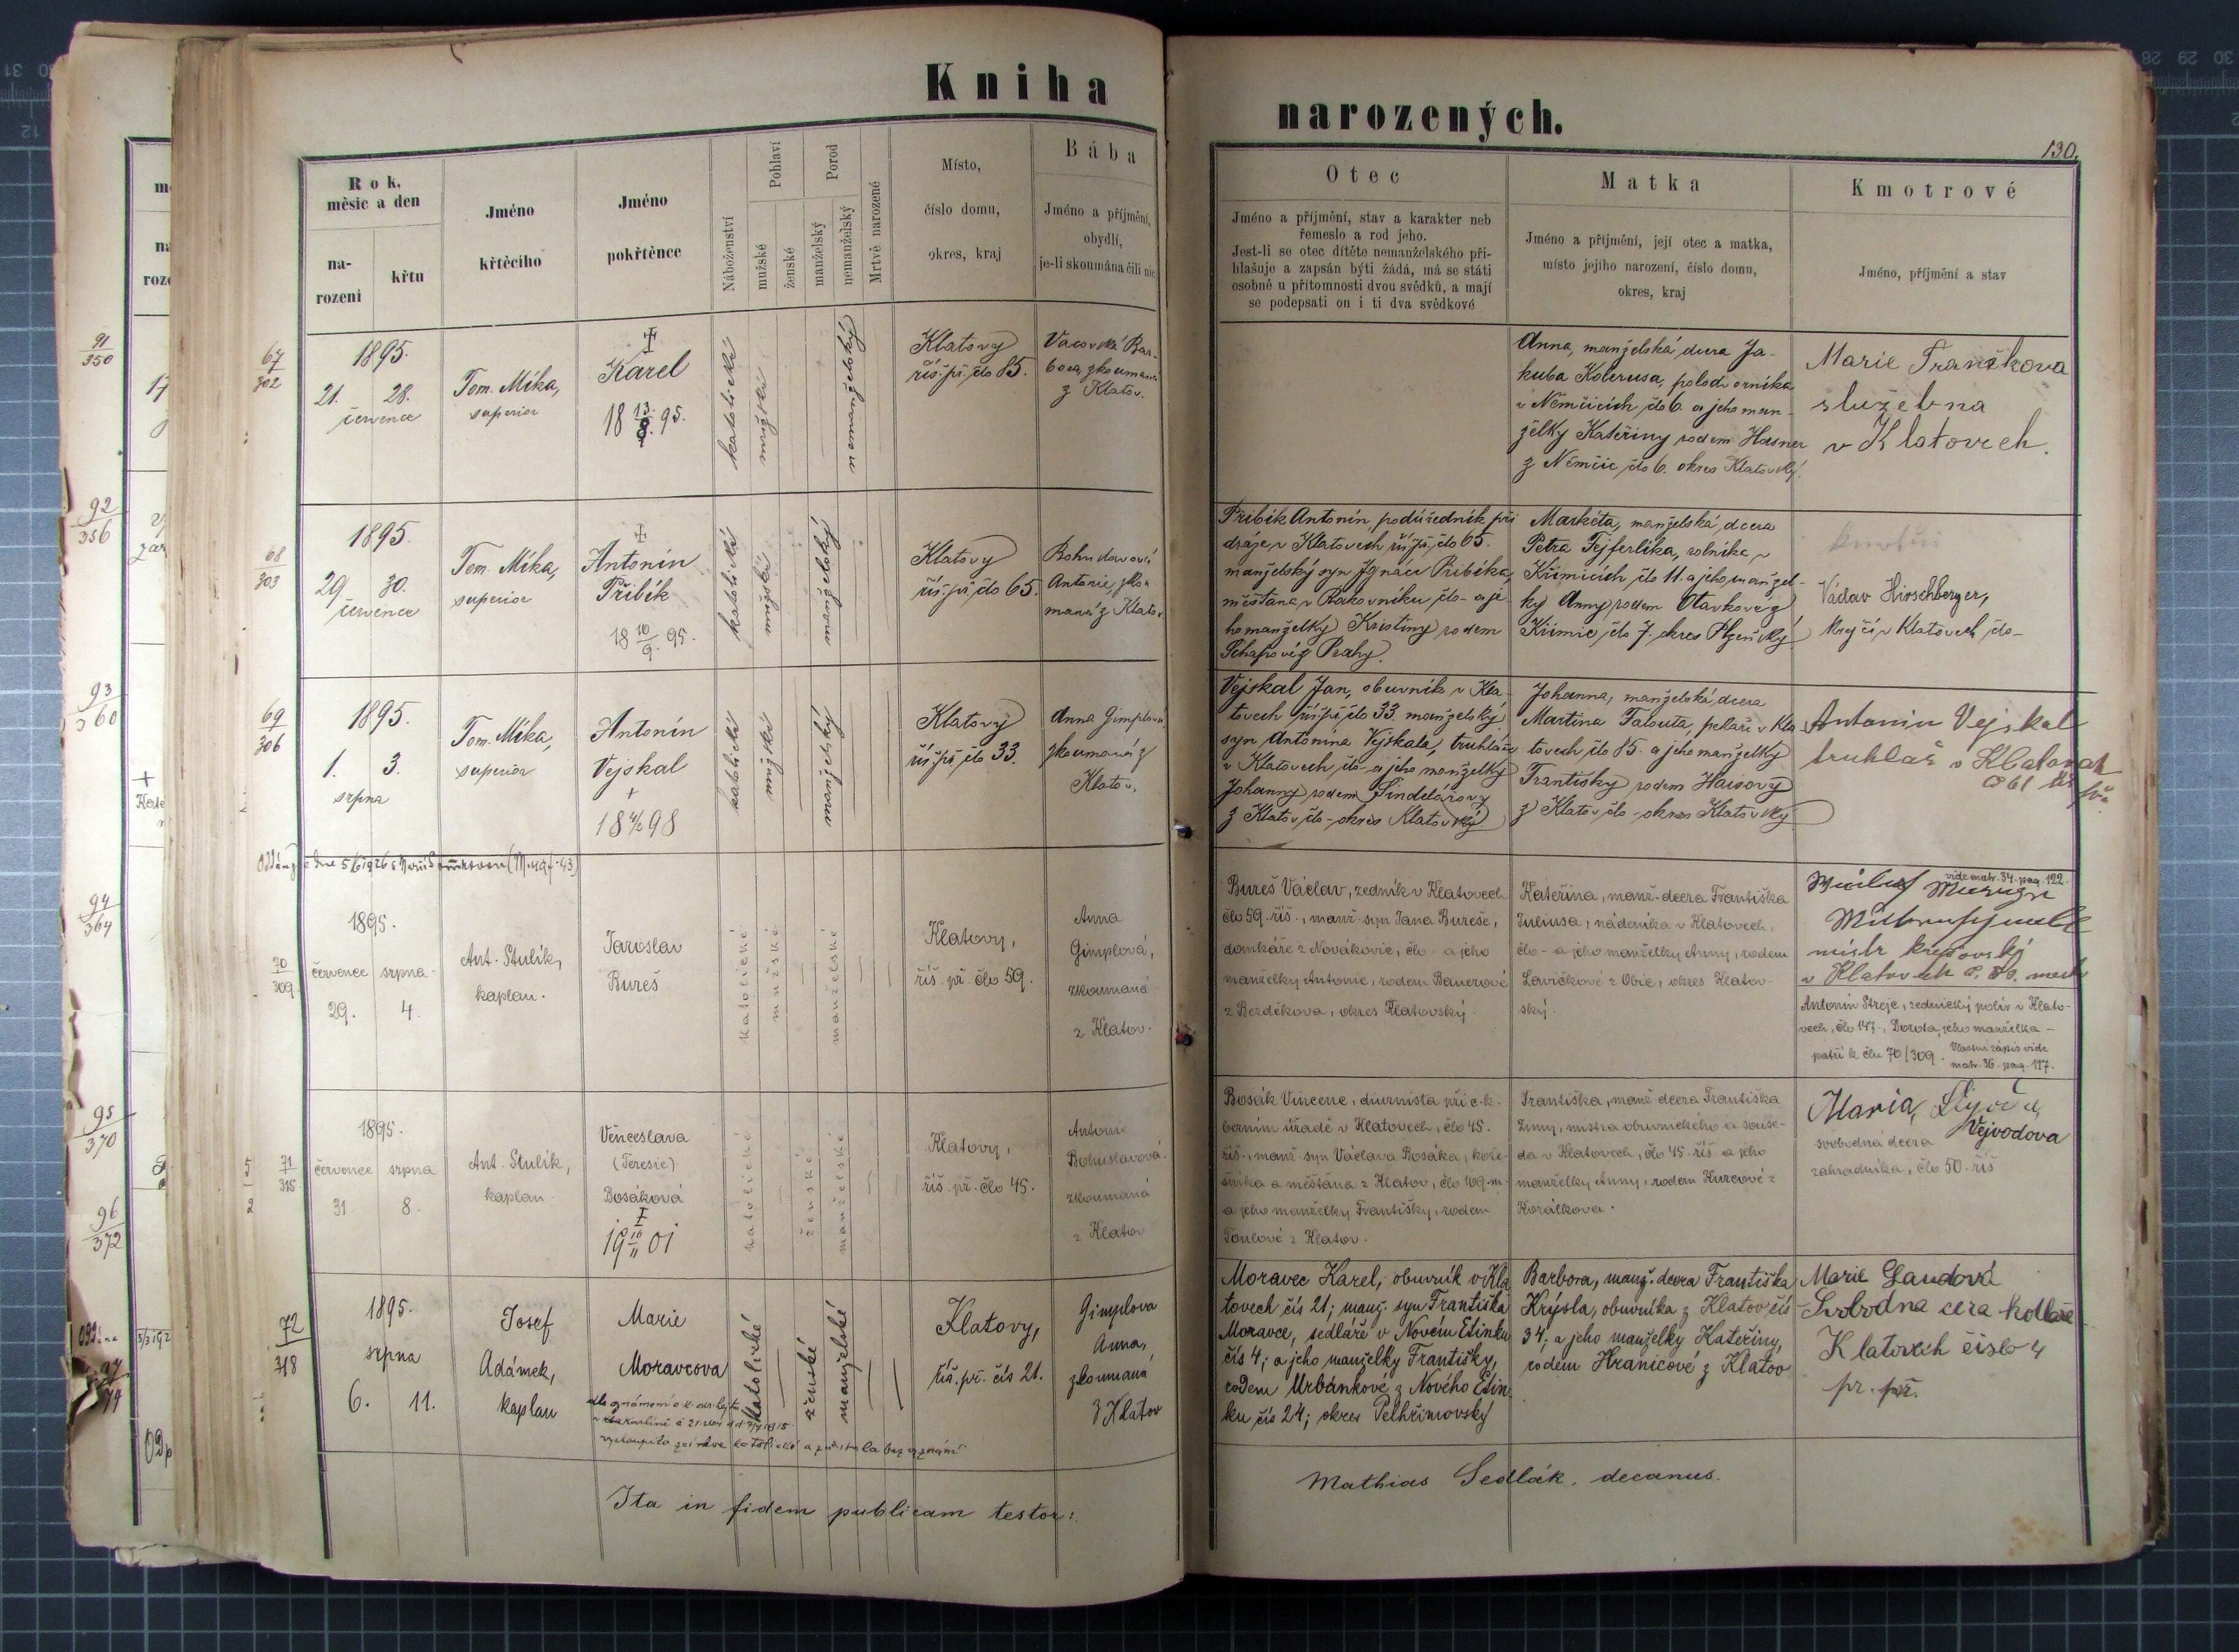 Kniha
narozených.
130.
Rok,
měsíc a den
na-
rozeni
křtu
Jméno
křtěcího
Jméno
pokřtěnce
Náboženství
Pohlaví
mužské
ženské
Porod
manželský
nemanželský
Mrtvě narozené
Místo,
číslo domu,
okres, kraj
Bába
Jméno a příjmění,
obydlí,
je-li skoumána čili nic
Otec
Jméno a příjmění, stav a karakter neb
řemeslo a rod jeho.
Jest-li se otec dítěte nemanželského při-
hlašuje a zapsán býti žádá, má se státi
osobně u přítomnosti dvou svědků, a mají
se podepsati on i ti dva svědkové
Matka
Jméno a příjmění, její otec a matka,
místo jejího narození, číslo domu,
okres, kraj
Kmotrové
Jméno, příjmění a stav
91
350
92
356
93
360
94
364
95
370
96
372
67
302
1895.
21. 28.
července
Tom. Míka,
superior
Karel
18 13/8. 95.
katolické
mužské
nemanželský
Klatovy
říš. př. čło 85.
z Klatov.
Anna, manželská dcera Ja-
kuba Kolerusa, polodvorníka
v Němčicích, čło 6. a jeho man-
želky Kateřiny rodem Hasner
z Němčic čło 6. okres Klatovský.
Marie
služebna
v Klatovech.
68
303
1895.
29. 30.
července
Tom. Míka,
superior
Antonín
Přibík
18 10/9. 95.
katolické
mužské
manželský
Klatovy
říš. př. čło 65.
Antonie, zkou
maná z Klatov
Přibík Antonín, podúředník při
dráze v Klatovech říš. př. čło 65.
manželský syn Ignáce Přibíka,
měšťana v Rakovníku, čło - a je-
ho manželky Kristiny rodem
z Prahy.
Markéta, manželská dcera
Petra Fejferlíka, rolníka v
Křimicích čło 11. a jeho manžel-
ky Anny rodem Otavkové z
Křimic čło 7. okres Plzeňský
Václav Hirschberger,
krejčí v Klatovech čło-
69
306
1895.
1. 3.
srpna
Tom. Míka,
superior
Antonín
Vejskal
katolické
mužské
manželský
Klatovy
říš. př. čło 33.
Anna Gimplová
zkoumaná z
Klatov.
Vejskal Jan, obuvník v Kla-
tovech říš. př. čło 33. manželský
syn Antonína Vejskala, truhláře
v Klatovech, čło - a jeho manželky
Johanny rodem Šindelářovy
z Klatov, čło - okres Klatovský
Johanna, manželská dcera
Martina Faloута, pekaře v Kla
tovech čło 85. a jeho manželky
Františky rodem Haisovy
z Klatov, čło - okres Klatovský
Antonin Vejskal
truhlař v Klatovech
70
309
1895.
července srpna
29. 4.
Ant. Stulík,
kaplan.
Jaroslav
Bureš
katolické
mužské
manželské
Klatovy,
říš. př. čło 59.
Anna
Gimplová,
zkoumaná
z Klatov.
Bureš Václav, zedník v Klatovech
čło 59. říš., manž. syn Jana Bureše,
domkáře z Novákovic, čło - a jeho
manželky Antonie, rodem Bauerové
z Bezděkova, okres Klatovský.
Kateřina, manž. dcera Františka
Juliusa, nádeníka v Klatovech,
čło - a jeho manželky Anny, rodem
Lavičkové z Obic, okres Klatov-
ský.
vide matr. 34. pag. 122.
mistr krejčovský
v Klatovech
Antonín Streje, zednický polír v Klato-
vech, čło 147, Dorota, jeho manželka -
patří k člu 70/309. Vlastní zápis vide
matr. 36. pag. 117.
71
315
1895.
července srpna
31. 8.
Ant. Stulík,
kaplan
Věnceslava
(Teresie)
Bosáková
19 10/11 01
katolické
ženské
manželské
Klatovy,
říš. př. čło 45.
Bohuslavová,
zkoumaná
z Klatov
Bosák Vincenc, diurnista při c. k.
berním úřadě v Klatovech, čło 45.
říš., manž. syn Václava Bosáka, kože-
šníka a měšťana z Klatov, čło 169. m.
a jeho manželky Františky, rodem
Toulové z Klatov.
Františka, manž. dcera Františka
Zimy, mistra obuvnického a souse-
da v Klatovech, čło 45. říš. a jeho
manželky Anny, rodem Kurcové z
Korálkova.
Maria,
Vejvodova
svobodná dcera
zahradníka, čło 50. říš
72
318
1895.
srpna
6. 11.
Josef
Adámek,
kaplan
Marie
Moravcova
katolické
ženské
manželské
Klatovy,
říš. př. čís 21.
Gimplova
Anna,
zkoumaná
z Klatov
Moravec Karel, obuvník v Kla
tovech čís 21; manž. syn Františka
Moravce, sedláře v Novém Etinku
čís 4; a jeho manželky Františky,
rodem Urbánkové z Nového Etin-
ku čís 24; okres Pelhřimovský
Barbora, manž. dcera Františka
Krýsla, obuvníka z Klatov čís
34; a jeho manželky Kateřiny,
rodem Hranicové z Klatov
Marie Landová
Svobodna cera kotlaře
Klatovech čislo 4
pr. př.
Ita in fidem publicam testor:
Mathias Sedlák, decanus.